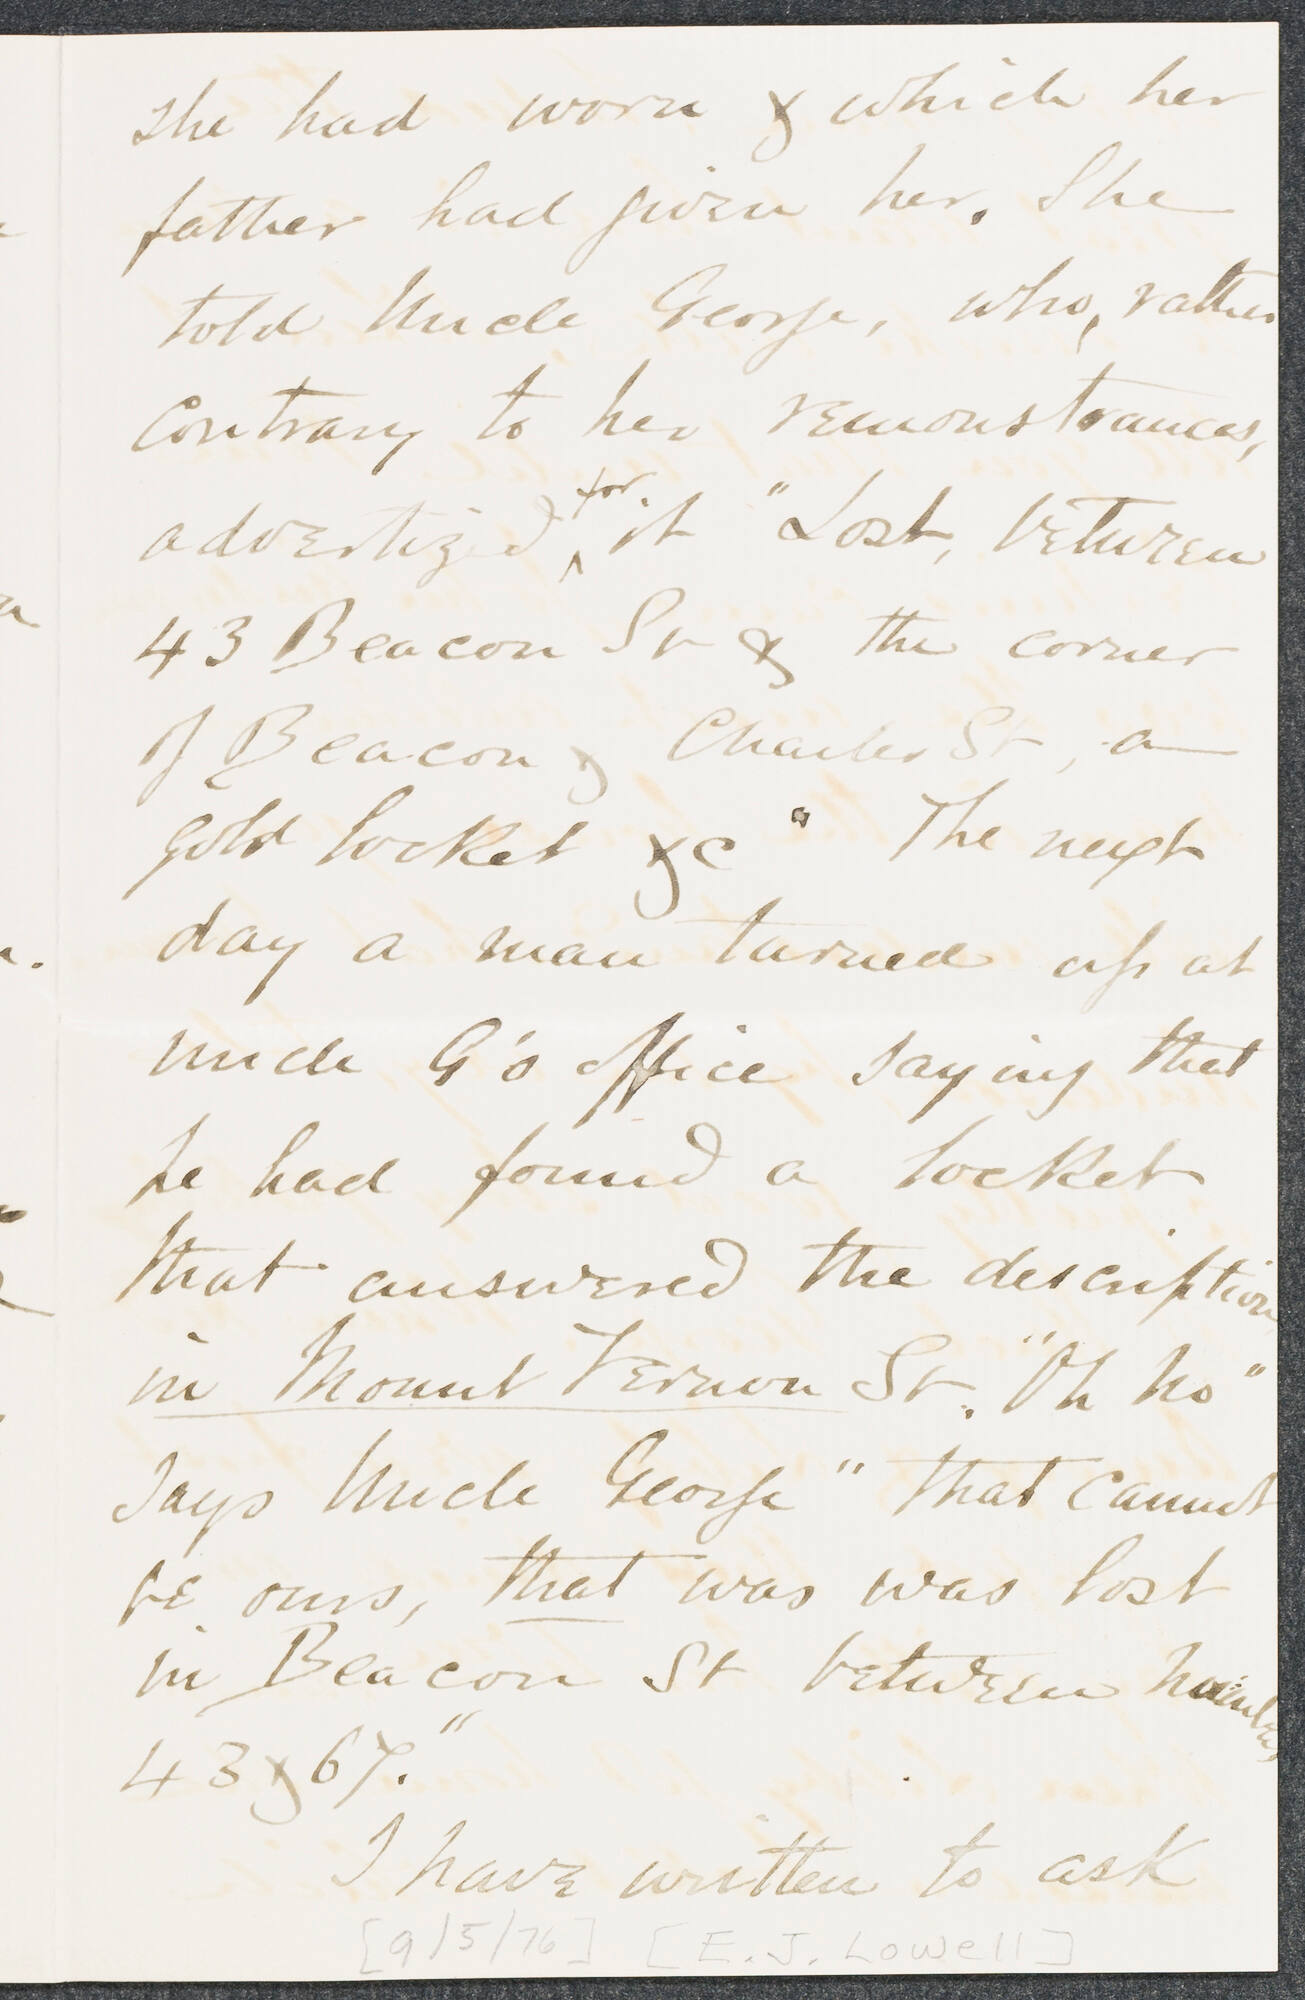 she had worn & which her
father had given her. She
told Uncle George, who, rather
contrary to her remonstrances,
advertized for it "Lost, between
43 Beacon St & the corner
of Beacon & Charles St, a
gold locket &c" The next
day a man turned up at
Uncle G's office saying that
he had found a locket
that answered the description
in Mount Vernon St. "Oh no"
says Uncle George "that cannot
be ours, that was was lost
in Beacon St between numbers
43 & 67."
I have written to ask
[9/5/76] [E. J. Lowell]